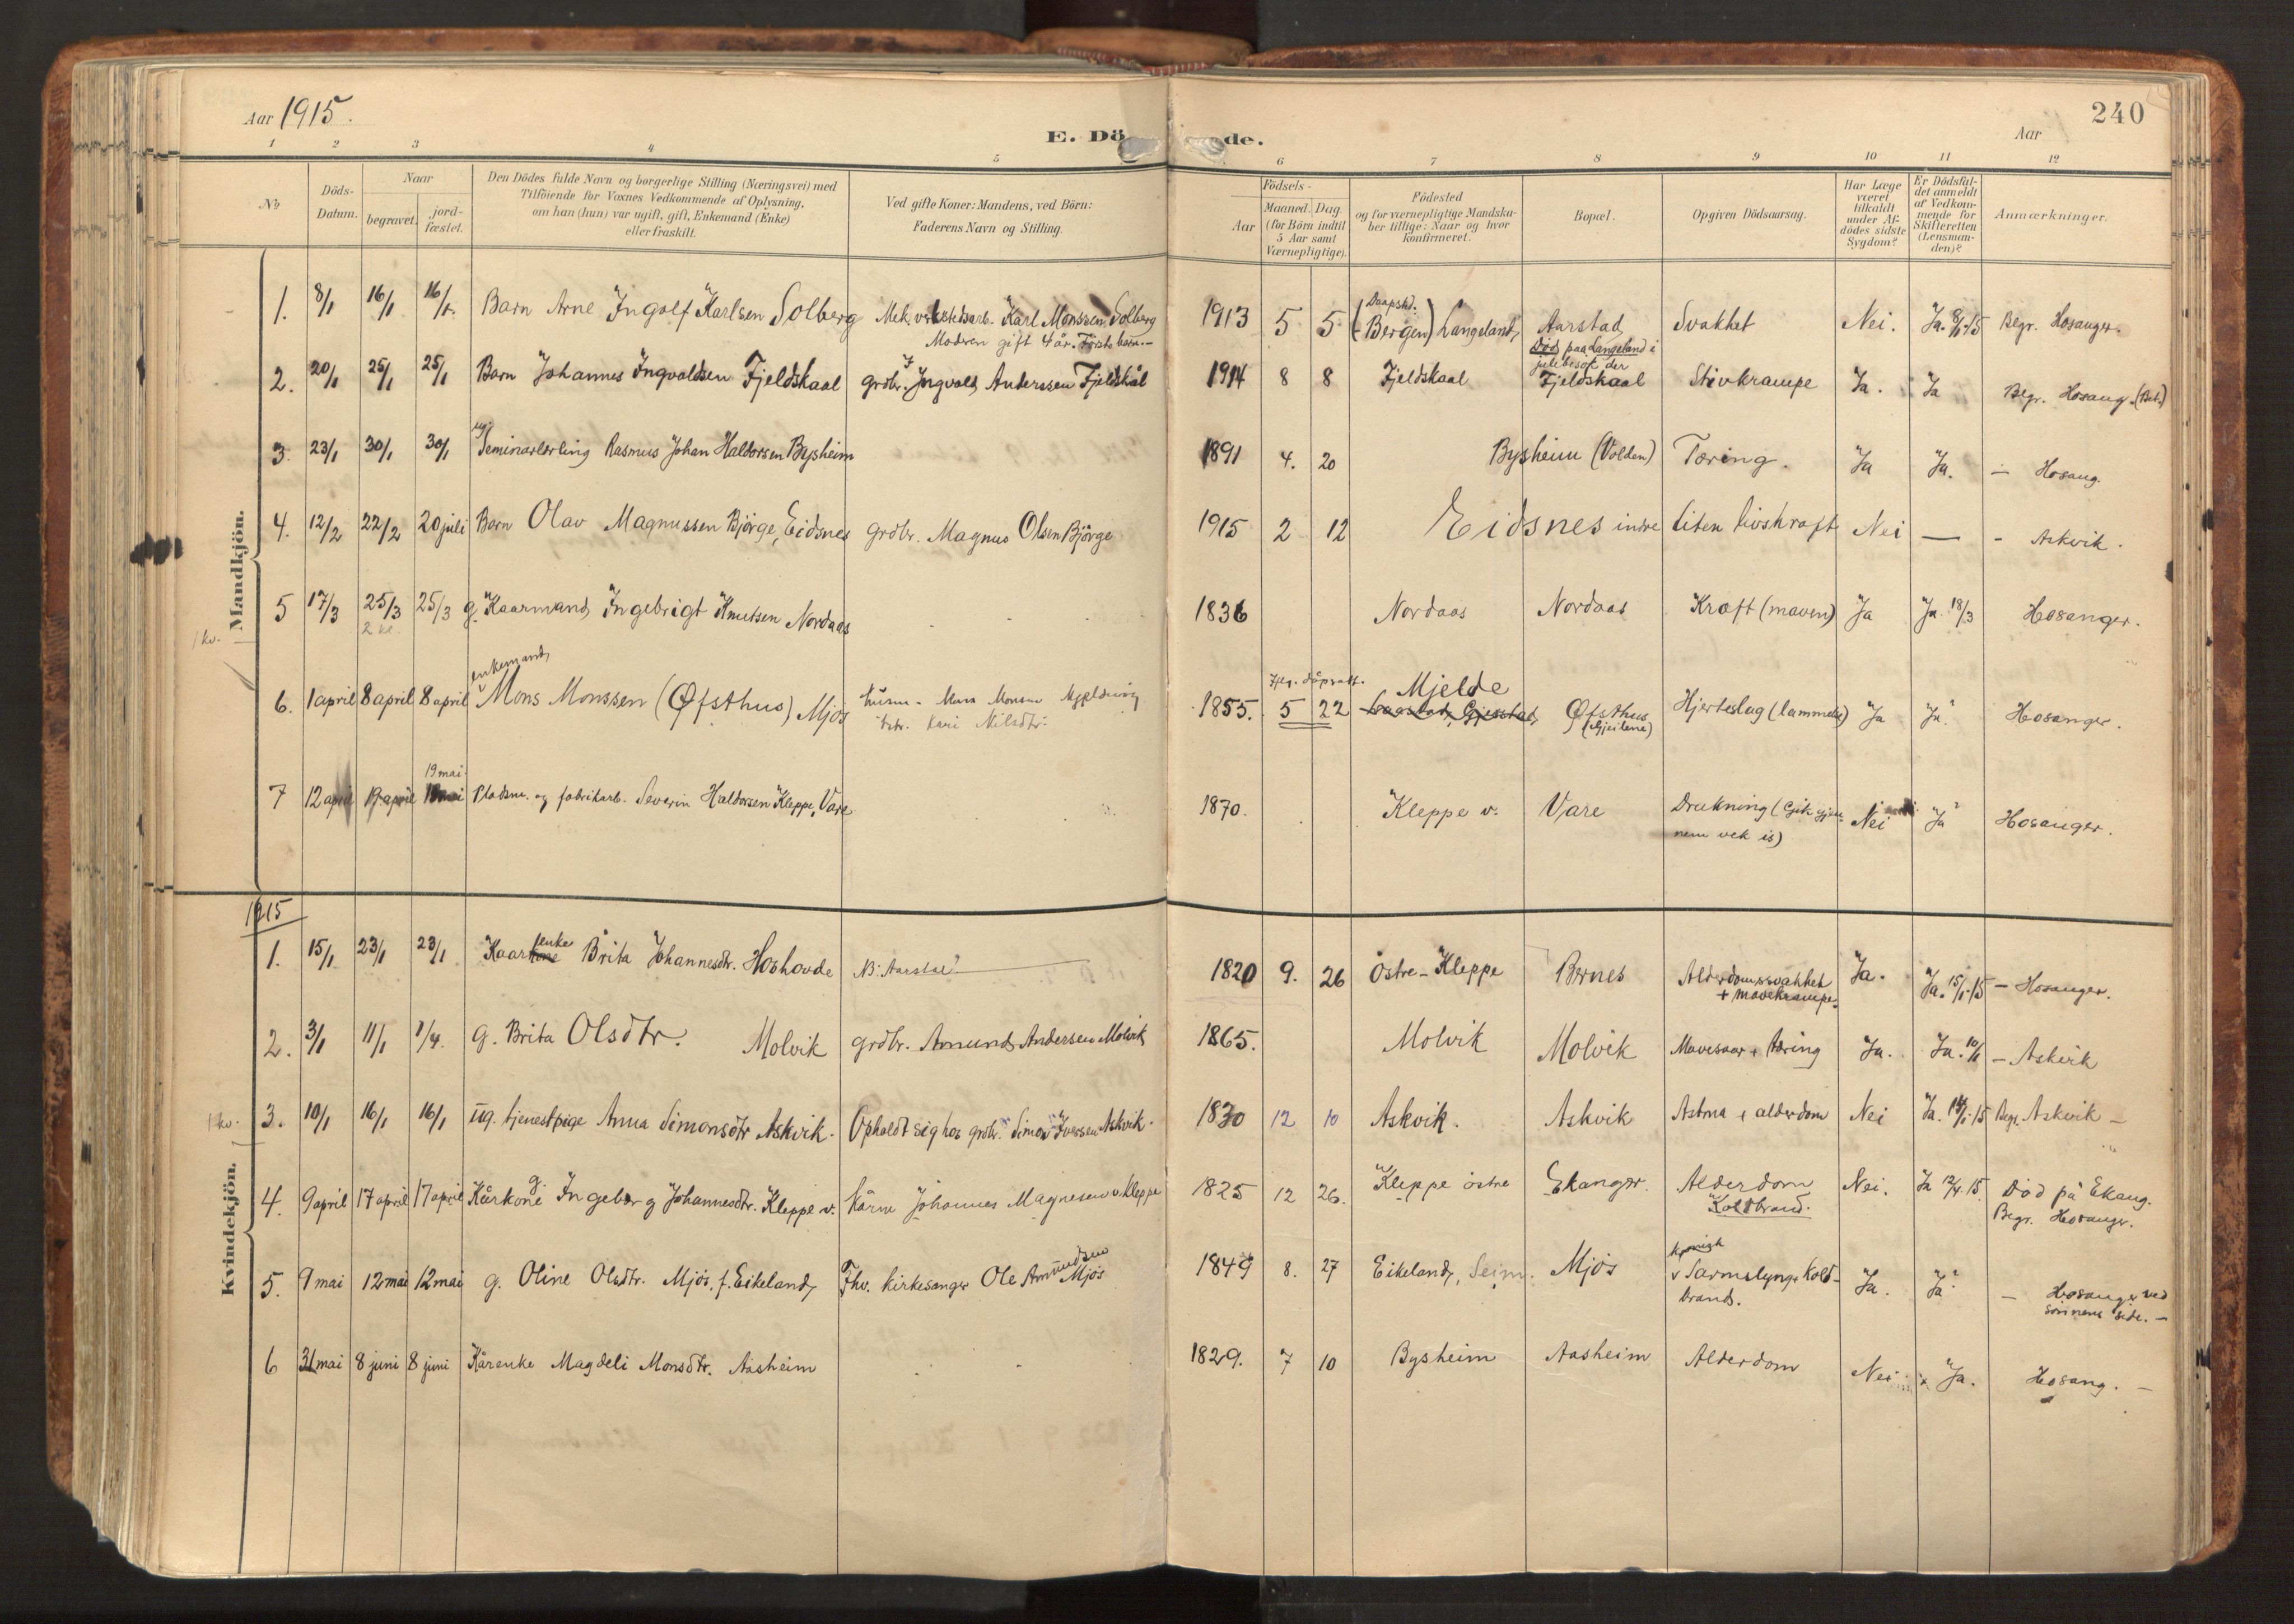 Aar 1915.
E. Dö de.
Aar
240
1 2 3 4 5 6 7 8 9 10 11 12
№
Döds-
Datum.
Naar
begravet.
jord-
fæstet.
Den Dödes fulde Navn og borgerlige Stilling (Næringsvei) med
Tilföiende for Voxnes Vedkommende af Oplysning,
om han (hun) var ugift, gift, Enkemand (Enke)
eller fraskilt.
Ved gifte Koner: Mandens, ved Börn:
Faderens Navn og Stilling.
Födsels-
Aar
Maaned. Dag.
(for Börn indtil
5 Aar samt
Værnepligtige).
Födested
og for værnepligtige Mandska-
ber tillige: Naar og hvor
konfirmeret.
Bopæl.
Opgiven Dödsaarsag.
Har Læge
været
tilkaldt
under Af-
dödes sidste
Sygdom?
Er Dödsfal-
det anmeldt
af Vedkom-
mende for
Skifteretten
(Lensman-
den)?
Anmærkninger.
Mandkjön.
1. 8/1 16/1 16/1. Barn Arne Ingolf Karlsen Solberg Mek. verkstedsarb. Karl Monssen Solberg
Moderen gift 4 år. Første barn.-
1913 5 5 (Daapsted: Bergen) Langeland Aarstad Svakhet Nei. Ja. 8/1-15 Begr. Hosanger.
Död paa Langeland i
julebesøk der
2. 20/1 25/1 25/1 Barn Johannes Ingvaldsen Fjeldskaal grdbr. Ingvald Anderssen Fjeldskål 1914 8 8 Fjeldskaal Fjeldskaal Stivkrampe Ja. Ja Begr. Hosang.
3. 23/1 30/1 30/1 ug. Seminarlerling Rasmus Johan Haldorsen Bysheim 1891 4. 20 Bysheim (Volden) Tæring. Ja Ja. - Hosang.
4. 12/2 22/2 20 juli Barn Olav Magnussen Bjørge, Eidsnes grdbr. Magnus Olsen Bjørge 1915 2 12 Eidsnes indre Liten livskraft Nei — - Askvik.
5 17/3 25/3 25/3 g. Kaarmand Ingebrigt Knutsen Nordaas 1836 Nordaas Nordaas Kræft (maven) Ja Ja. 18/3 Hosanger.
1 kv.
6. 1 april 8 april 8 april enkemand Mons Monssen (Øfsthus) Mjøs husm. Mons Monsen
Kari Nilsdtr.
1855. 5 22 Mjelde Øfsthus
(Gjeilene)
Hjerteslag (lammelse) Ja Ja. Hosanger.
7 12 april 19 april 19 mai Pladsm. og fabrikarb. Severin Haldorsen Kleppe, Vare 1870. Kleppe v. Vare Drukning (Gik gjen-
nem vek is) Nei Ja Hosanger.
1915
Kvindekjön.
1. 15/1 23/1 23/1 Kaarenke Brita Johannesdtr. Hoshovde 1820 9. 26 Östre-Kleppe Bernes Alderdomssvakhet
+ mavekrampe. Ja. Ja. 15/1-15 - Hosanger.
2. 3/1 11/1 1/4. g. Brita Olsdtr. Molvik grdbr. Amund Andersen Molvik 1865. Molvik Molvik Mavesaar + tæring Ja. Ja. 10/1 - Askvik
1 kv.
3. 10/1 16/1 16/1 ug. tjenestpige Anna Simonsdtr Askvik. Opholdt sig hos grdbr. Simon Iverssen Askvik. 1830 12 10 Askvik. Askvik Astma + alderdom Nei Ja. 14/1-15 Begr. Askvik -
4. 9 april 17 april 17 april Kårkone g. Ingeborg Johannesdtr. Kleppe v. Kårm Johannes Magnesen v. Kleppe 1825 12 26. Kleppe østre Ekanger. Alderdom
Koldbrand. Nei. Ja 12/4.15. Død på Ekang.
Begr. Hosanger.
5. 9 mai 12 mai 12 mai g. Oline Olsdtr. Mjøs, f. Eikeland Fhv. kirkesanger Ole Amundsen
Mjøs 1849 8. 27 Eikeland, Seim. Mjøs kronisk
Tarmslyng + Kold-
brand. Ja. Ja - Hosanger ved
sønnens side. -
6 31 mai 8 juni 8 juni Kårenke Magdeli Monsdtr. Aasheim 1829. 7 10 Bysheim Aasheim Alderdom Nei Ja. Hosang. -